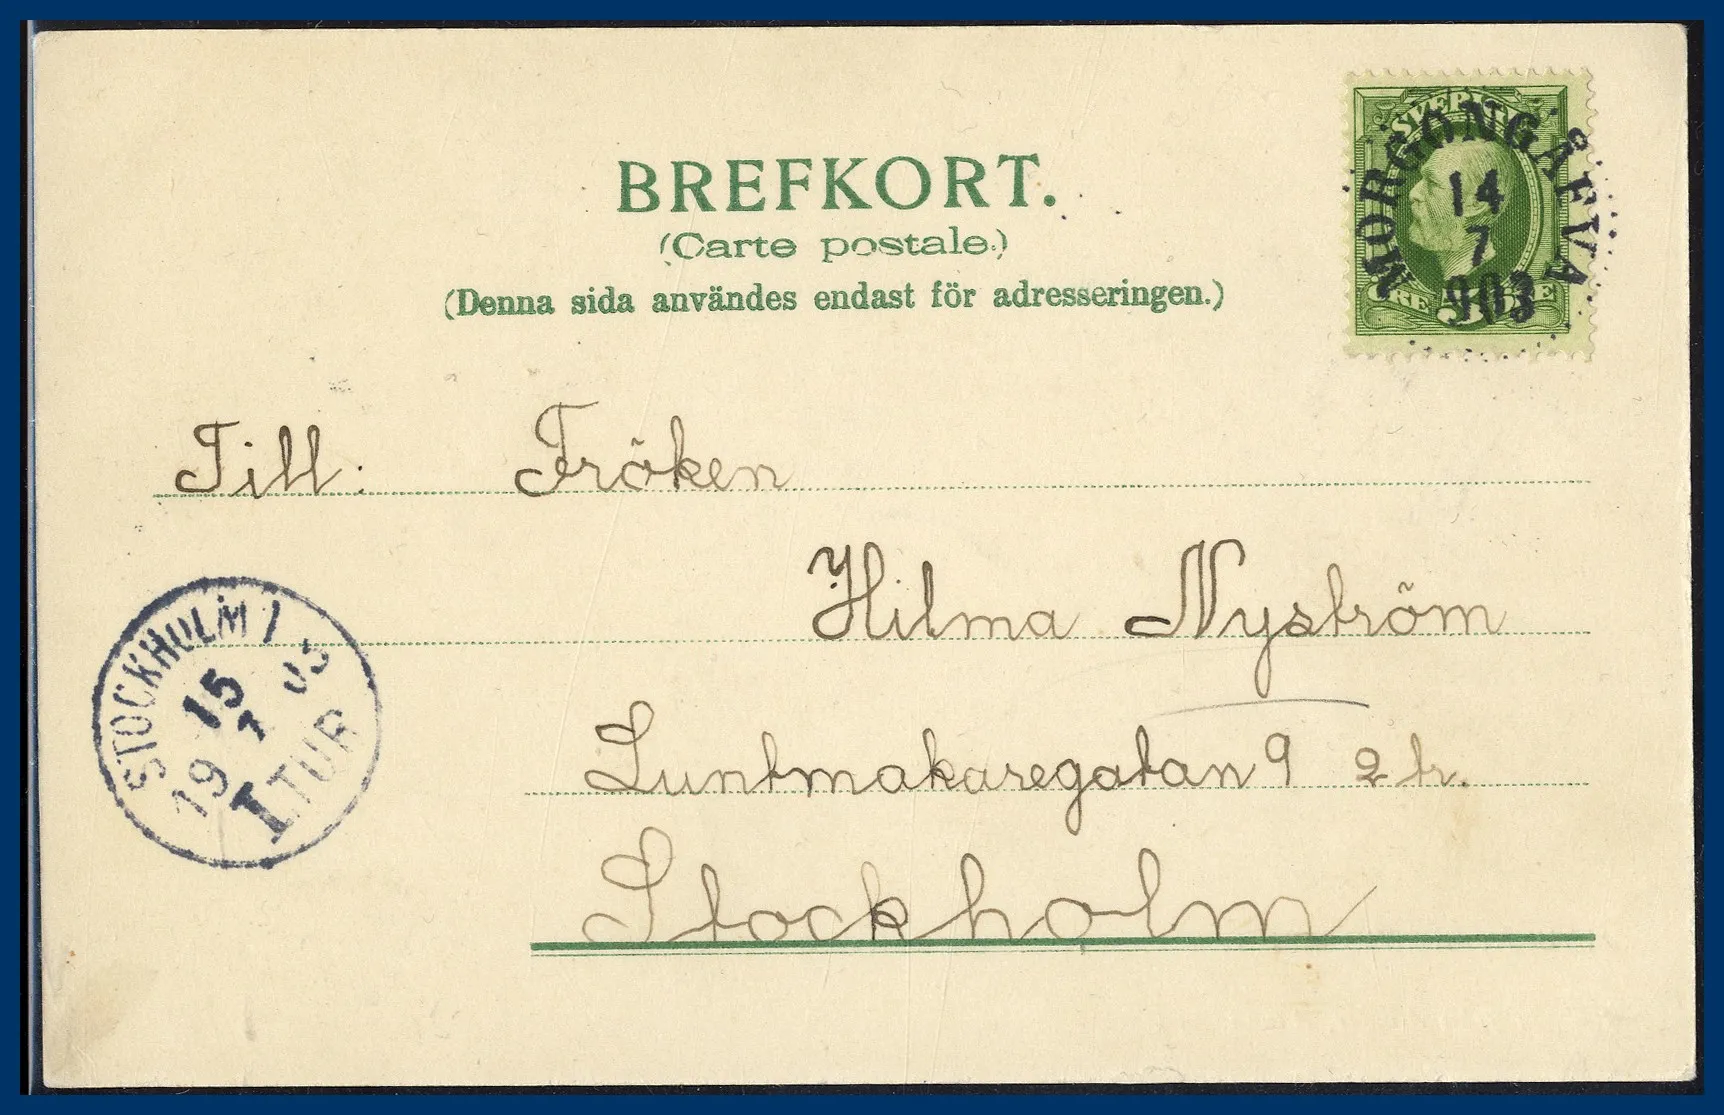 BREFKORT.
(Carte postale.)
(Denna sida användes endast för adresseringen.)
SVERIGE
ÖRE 5 ÖRE
MORGONGÅFVA
14
7
903
Till: Fröken
Hilma Nyström
Luntmakaregatan 9 2 tr.
Stockholm
STOCKHOLM 1
15 7
19 03
I.TUR